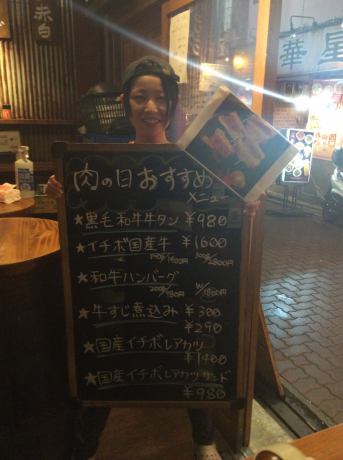 赤白
華星
肉の日おすすめ
メニュー
★黒毛和牛牛タン ¥980
★イチボ国産牛 ¥1600
★和牛ハンバーグ
★牛すじ煮込み ¥300
¥290
★国産イチボレアカツ
¥1400
★国産イチボレアカツサンド
¥980